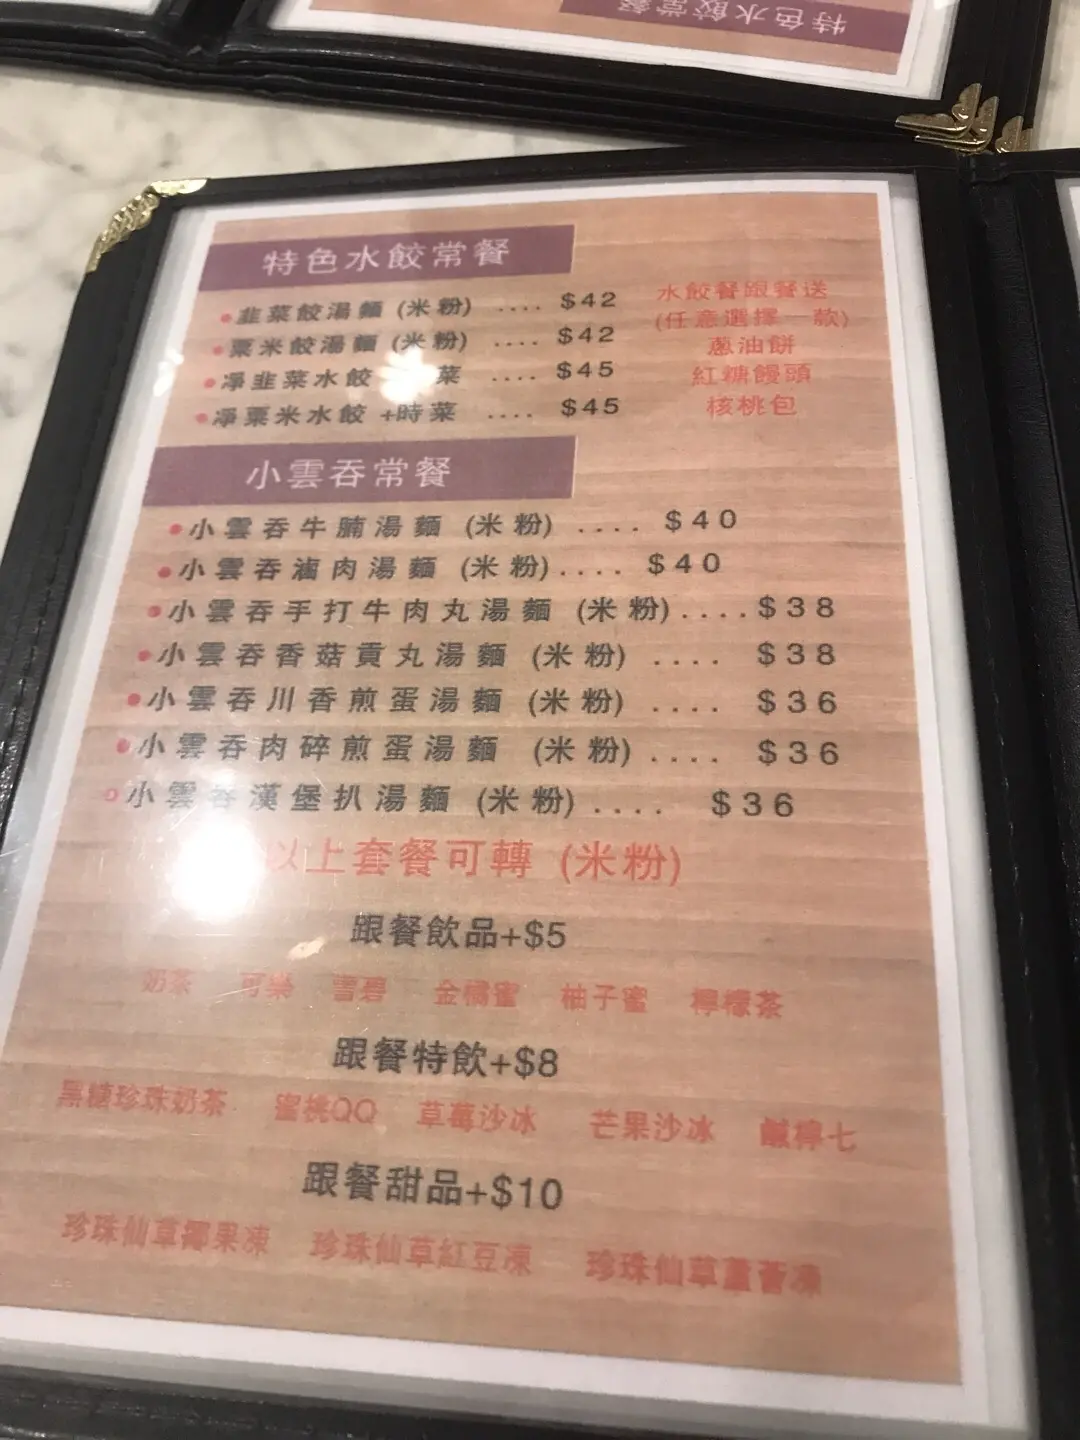 特色水餃常餐
特色水餃常餐
•韭菜餃湯麵 (米粉) .... $42
•粟米餃湯麵 (米粉) .... $42
•凈韭菜水餃 菜 .... $45
•凈粟米水餃 +時菜 .... $45
水餃餐跟餐送
(任意選擇一款)
蔥油餅
紅糖饅頭
核桃包
小雲吞常餐
•小雲吞牛腩湯麵 (米粉) .... $40
•小雲吞滷肉湯麵 (米粉).... $40
•小雲吞手打牛肉丸湯麵 (米粉)....$38
•小雲吞香菇貢丸湯麵 (米粉) .... $38
•小雲吞川香煎蛋湯麵 (米粉) .... $36
•小雲吞肉碎煎蛋湯麵 (米粉) .... $36
•小雲吞漢堡扒湯麵 (米粉) .... $36
以上套餐可轉 (米粉)
跟餐飲品+$5
奶茶 可樂 雪碧 金橘蜜 柚子蜜 檸檬茶
跟餐特飲+$8
黑糖珍珠奶茶 蜜桃QQ 草莓沙冰 芒果沙冰 鹹檸七
跟餐甜品+$10
珍珠仙草椰果凍 珍珠仙草紅豆凍 珍珠仙草蘆薈凍